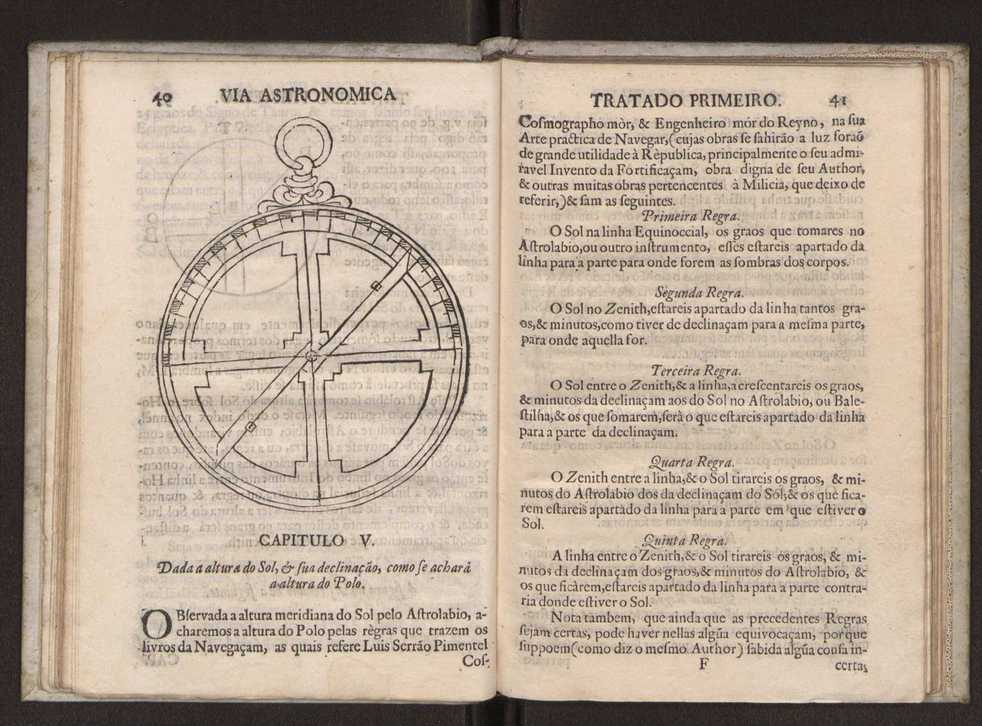 40 VIA ASTRONOMICA
CAPITULO V.
Dada a altura do Sol, & sua declinação, como se achará
a altura do Polo.
OBſervada a altura meridiana do Sol pelo Aſtrolabio, a-
charemos a altura do Polo pelas règras que trazem os
livros da Navegaçam, as quais refere Luis Serrão Pimentel
Coſ-
TRATADO PRIMEIRO. 41
Coſmographo mòr, & Engenheiro mòr do Reyno, na ſua
Arte practica de Navegar,(cujas obras ſe ſahirão a luz foraõ
de grande utilidade à Rèpublica, principalmente o ſeu admi-
ravel Invento da Fortificaçam, obra digna de ſeu Author,
& outras muitas obras pertencentes à Milicia, que deixo de
referir,)& ſam as ſeguintes.
Primeira Regra.
O Sol na linha Equinoccial, os graos que tomares no
Aſtrolabio,ou outro inſtrumento, eſſes eſtareis apartado da
linha para a parte para onde forem as ſombras dos corpos.
Segunda Regra.
O Sol no Zenith,eſtareis apartado da linha tantos gra-
os,& minutos,como tiver de declinaçam para a meſma parte,
para onde aquella for.
Terceira Regra.
O Sol entre o Zenith,& a linha,acreſcentareis os graos,
& minutos da declinaçam aos do Sol no Aſtrolabio, ou Bale-
ſtilha,& os que ſomarem,ſerà o que eſtareis apartado da linha
para a parte da declinaçam.
Quarta Regra.
O Zenith entre a linha,& o Sol tirareis os graos, & mi-
nutos do Aſtrolabio dos da declinaçam do Sol;& os que fica-
rem eſtareis apartado da linha para a parte em que eſtiver o
Sol.
Quinta Regra.
A linha entre o Zenith,& o Sol tirareis os graos, & mi-
nutos da declinaçam dos graos,& minutos do Aſtrolabio, &
os que ficàrem,eſtareis apartado da linha para a parte contra-
ria donde eſtiver o Sol.
Nota tambem, que ainda que as precedentes Regras
ſejam certas, pode haver nellas algũa equivocaçam, porque
ſuppoem(como diz o meſmo Author) ſabida algũa couſa in-
F certa,